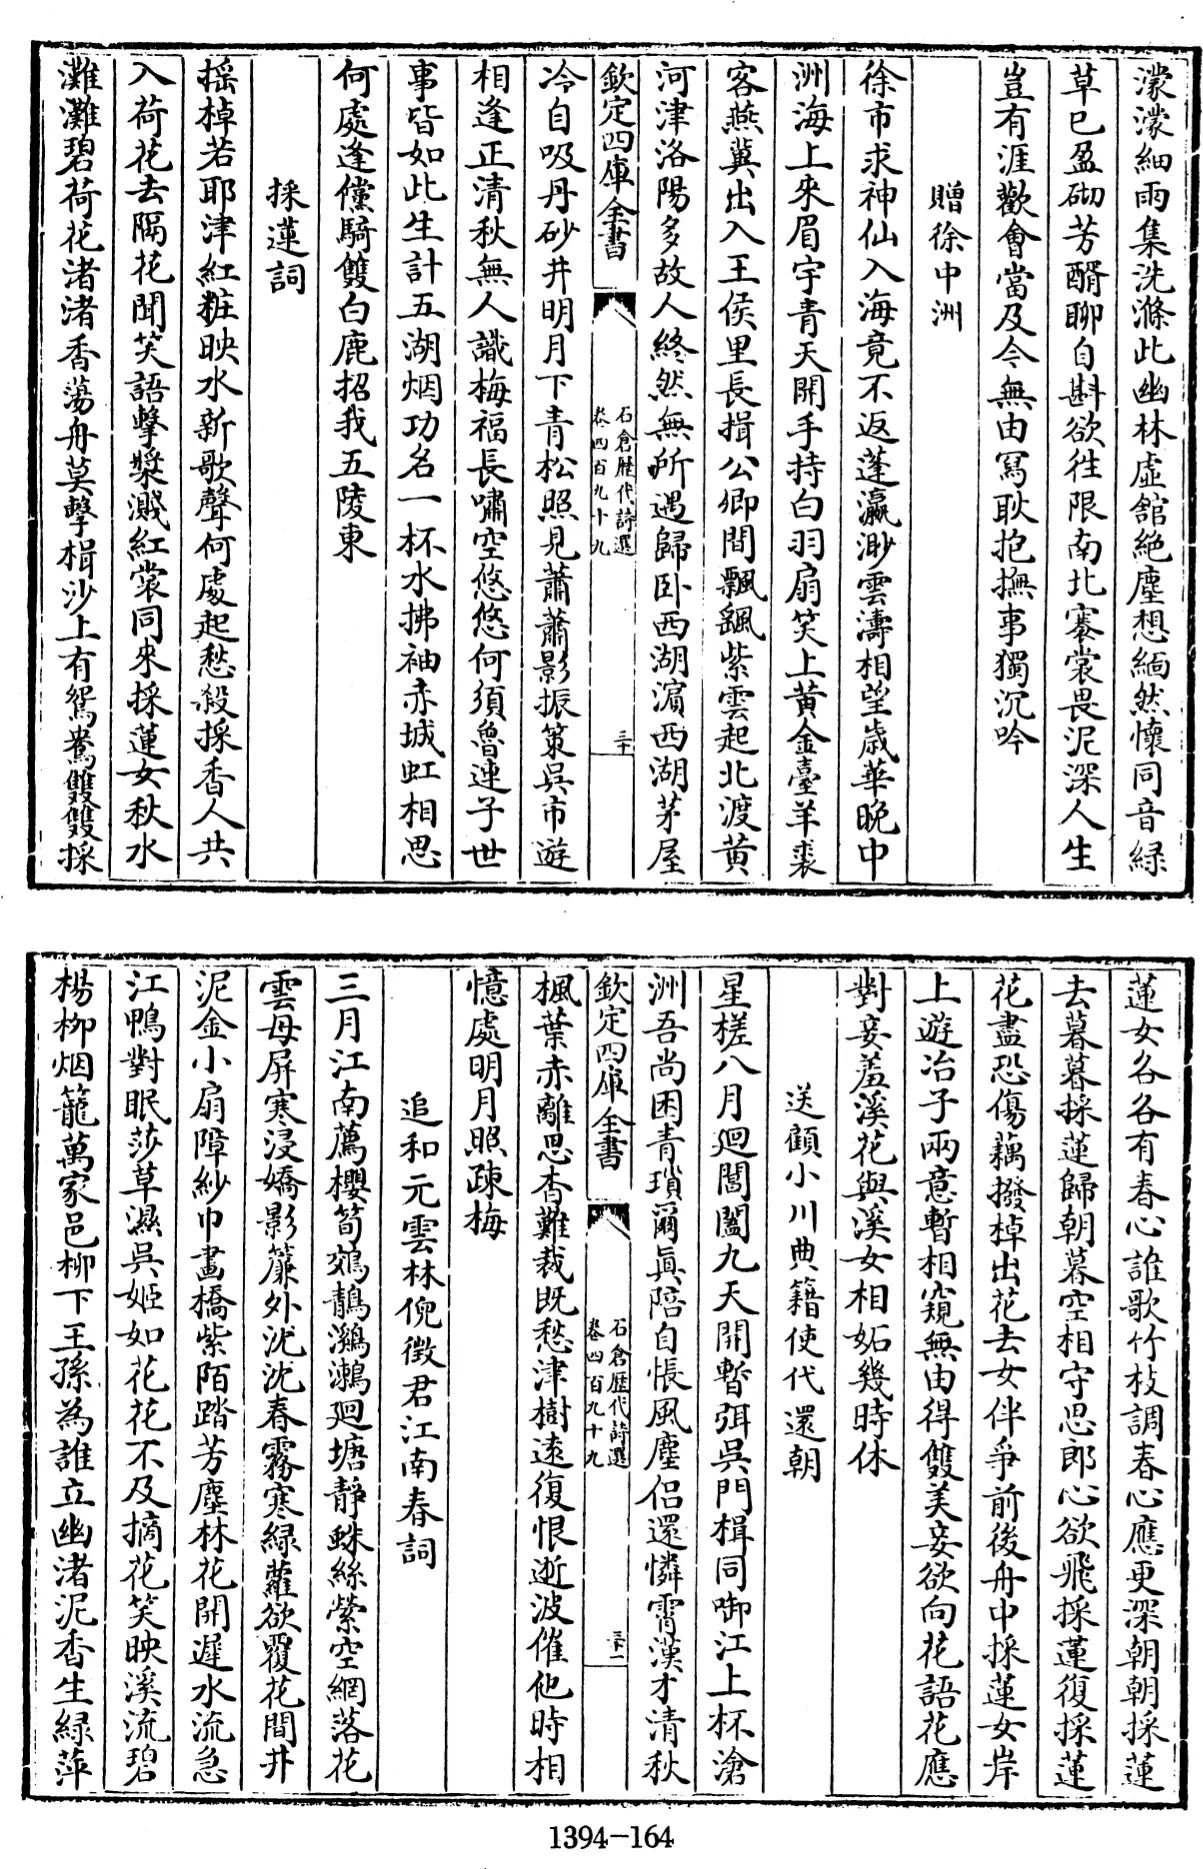 濛濛細雨集洗滌此幽林虛館絶塵想緬然懷同音緑
草已盈砌芳醑聊自斟欲往限南北褰裳畏泥深人生
豈有涯歡會當及今無由寫耿抱撫事獨沉吟
贈徐中洲
徐市求神仙入海竟不返蓬瀛渺雲濤相望歲華晚中
洲海上來眉宇青天開手持白羽扇笑上黄金臺羊裘
客燕冀出入王侯里長揖公卿間飄飖紫雲起北渡黄
河津洛陽多故人終然無所遇歸卧西湖濵西湖茅屋
欽定四庫全書
石倉歴代詩選
卷四百九十九
三十
冷自吸丹砂井明月下青松照見蕭蕭影振策吳市遊
相逢正清秋無人識梅福長嘯空悠悠何須魯連子世
事皆如此生計五湖烟功名一杯水拂袖赤城虹相思
何處逢儻騎雙白鹿招我五陵東
採蓮詞
摇棹若耶津紅粧映水新歌聲何處起愁殺採香人共
入荷花去隔花聞笑語擊槳濺紅裳同來採蓮女秋水
灘灘碧荷花渚渚香蕩舟莫擊楫沙上有鴛鴦雙雙採
蓮女各各有春心誰歌竹枝調春心應更深朝朝採蓮
去暮暮採蓮歸朝暮空相守思郎心欲飛採蓮復採蓮
花盡恐傷藕撥棹出花去女伴爭前後舟中採蓮女岸
上遊冶子兩意暫相窺無由得雙美妾欲向花語花應
對妾羞溪花與溪女相妬幾時休
送顧小川典籍使代還朝
星槎八月廻閶闔九天開暫弭吳門楫同啣江上杯滄
洲吾尚困青瑣爾真陪自悵風塵侣還憐霄漢才清秋
欽定四庫全書
石倉歴代詩選
卷四百九十九
三十一
楓葉赤離思杳難裁既愁津樹遠復恨逝波催他時相
憶處明月照疎梅
追和元雲林倪徴君江南春詞
三月江南薦櫻筍鵁鶄鸂鶒廻塘靜蛛絲縈空網落花
雲母屏寒浸嬌影簾外沈沈春霧寒緑蘿欲覆花間井
泥金小扇障紗巾畫橋紫陌踏芳塵林花開遲水流急
江鴨對眠莎草濕吳姬如花花不及摘花笑映溪流碧
楊柳烟籠萬家邑柳下王孫為誰立幽渚泥香生緑萍
1394-164